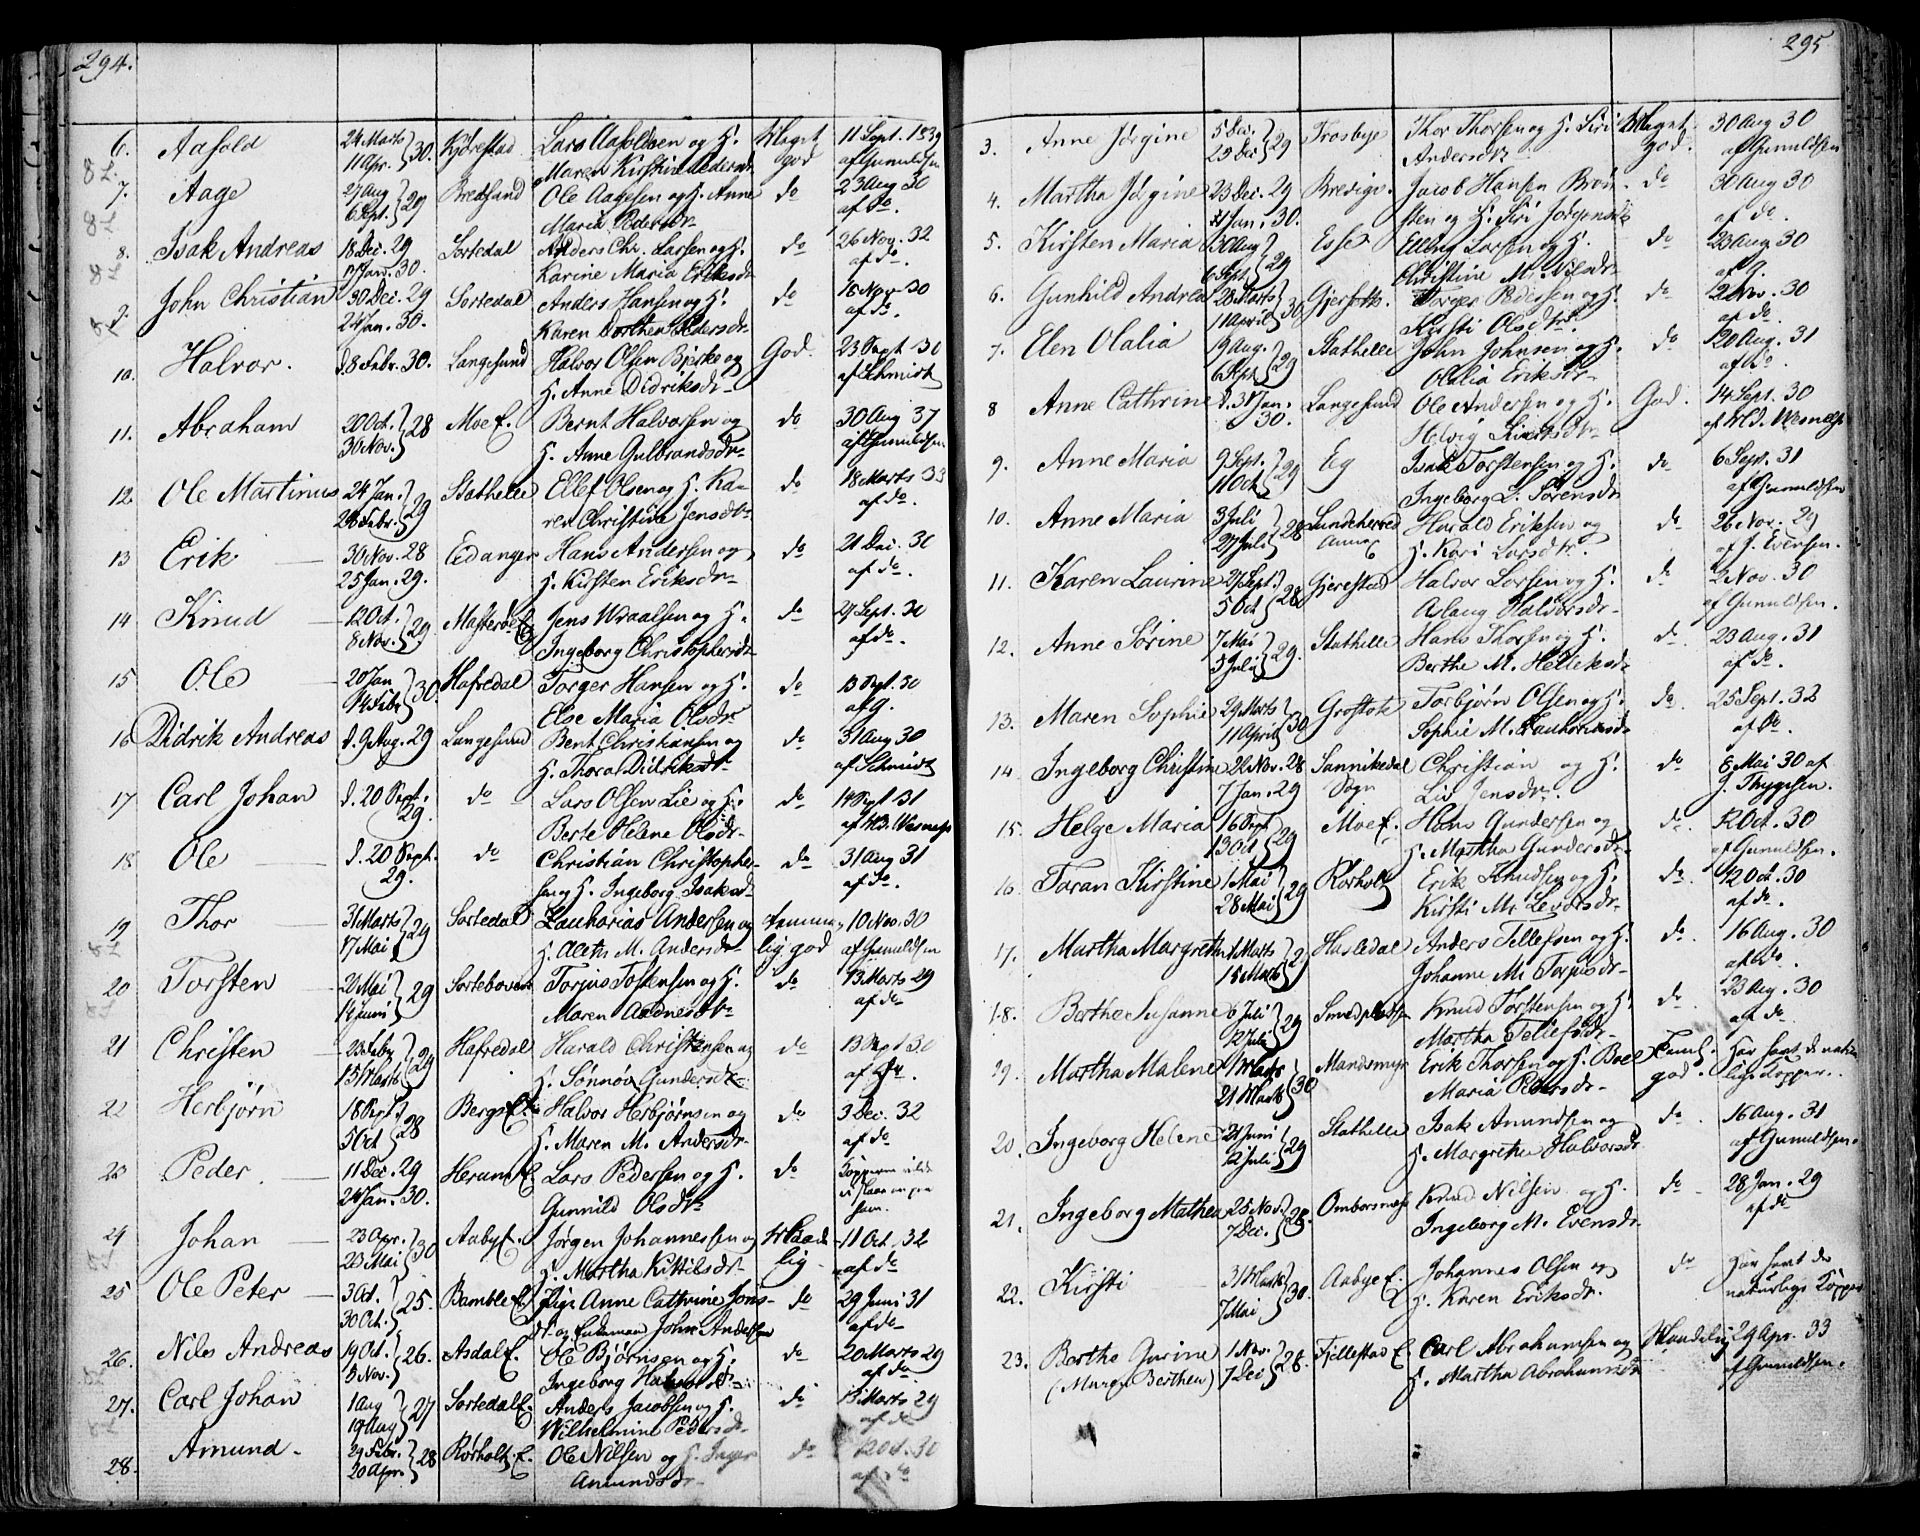 294.
6. Aasold 24 Marts 11 Apr. } 30. Kjørestad Lars Aasoldsen og H. Meget 11 Sept. 1839
Maren Kirstine Pedersdr god af Gunuldsen
7. Aage 27 Aug 6 Sept. } 29 Bredsund Ole Aagesen og H. Anne do 23 Aug 30
Maria Pedersdr af do.
8. Isak Andreas 18 Dec. 29 Sortedal Anders Chr. Larsen og H. do 26 Nov. 32
17 Jan. 30. Karine Maria Eriksdr af do.
9. John Christian 30 Dec. 29 Sortedal Anders Hansen og H. do 16 Nov. 30
24 Jan. 30. Karen Dorthea Pedersdr af do.
10. Halvor. d. 8 Febr. 30. Langesund Halvor Olsen Bjerke og God. 23 Sept 30
H. Anne Didriksdr af Schmidt
11. Abraham 20 Oct. 30 Nov. } 28 Moe E. Bernt Halvorsen og do 30 Aug 37
H. Anne Gulbrandsdr af Gunuldsen
12. Ole Martinus 24 Jan. 28 Febr. } 29 Stathelle Ellef Olsen og H. Ka- do 18 Marts 33
ren Christine Jensdr af do.
13 Erik 30 Nov. 28 Eidanger Hans Andersen og do 21 Dec. 30
25 Jan. 29. H. Kirsten Eriksdr af do
14 Knud 12 Oct. 8 Nov. } 29 Jens Wraalsen og H. do 29 Sept. 30
Ingeborg Christophersdr af do.
15 Ole 20 Jan 14 Febr } 30 Hafredal Torger Hansen og H. do 13 Sept. 30
Else Maria Olsdr af G.
16 Didrik Andreas d. 9 Aug. 29 Langesund Bent Christiansen og do 31 Aug 30
H. Thora Didriksdr af Schmidt
17 Carl Johan d. 20 Sept. 29. do Lars Olsen Lie og H. do 14 Sept 31
Berte Helene Olsdr.
18 Ole d. 20 Sept. 29. do Christian Christophe- do 31 Aug 31
sen og H. Ingeborg Isaksdr af do.
19 Thor 31 Marts 17 Mai } 29 Sortedal Zacharias Andersen og temme- 10 Nov. 30
H. Aleth M. Andersdr lig god af Gunuldsen
20 Torsten 21 Mai 14 Juni } 29 Torjus Tostensen og H. do 13 Marts 29
Maren Aadnesdr af do
21 Christen 15 Marts } 29 Hafredal Harald Christensen og do 13 Sept 30
H. Sønnøv Gundersdr af do
22 Herbjørn 18 Sept. 5 Oct } 28 Bergs E. Halvor Herbjørnsen og do 3 Dec. 32
H. Maren M. Andersdr af do
23 Peder. 11 Dec. 29 Herum E. Lars Pedersen og H. do Kopperne vilde
24 Jan. 30. Gunnild Olsdr ei slaae an paa ham.
24 Johan 23 Apr. 23 Mai } 30 Aaby E. Jørgen Johannessen og Maade- 11 Oct. 32
H. Martha Kittilsdr lig af do
25 Ole Peter 3 Oct. 30 Oct. } 25. Bamble E. Pige Anne Cathrine Jons- do 29 Juni 31
dr. og John Andersen af do
26. Nils Andreas 19 Oct. 5 Nov. } 26. Asdal E. Ole Bjørnsen og H. do 20 Marts 29
Ingeborg Halvorsdr af do.
27. Carl Johan 1 Aug 19 Aug } 27 Sortedal E. Anders Jacobsen og H. do 13 Marts 29
Wilhelmine Pedersdr. af do
28. Amund 29 Febr. 20 Apr. } 28 Rørholt E. Ole Nilsen og H. Inger do 12 Oct. 30
Amundsdr af do
295
3. Anne Jørgine 5 Dec. 29 Dec } 29 Trosbye Thor Thorsen og H. Siri Meget 30 Aug 30
Andersdr god. af Gunuldsen
4. Martha Jørgine 23 Dec. 29 Brevign. Jacob Hansen Brøn- do 30 Aug 30
21 Jan. 30. sten og H. Siri Jørgensdr af do.
5. Kirsten Maria 30 Aug 6 Sept. } 29 Esse Elling Larsen og H. do 23 Aug 30
Christine M. Nilsdr af G.
6. Gunhild Andrea 28 Marts 11 April } 30 Torger Pedersen og H. do 2 Nov. 30
Kirsti Olsdr. af do.
7. Elen Olalia 19 Aug. 6 Sept } 29 Stathelle John Johnsen og H. do 20 Aug. 31
Olalia Eriksdr. af do.
8 Anne Cathrine d. 31 Jan. 30. Langesund Ole Andersen og H. God. 14 Sept. 30
Helvig
9. Anne Maria 9 Sept. 11 Oct } 29 Eeg Isak Torstensen og H. do 6 Sept. 31
Ingeborg L. Sørensdr af Gunuldsen
10. Anne Maria 3 Juli 27 Juli } 28 Lundeherred Harald Eriksen og do 26 Nov. 29
Annex H. Kari Larsdtr. af J. Evensen.
11. Karen Laurine 27 Sept. 5 Oct } 28 Gjerestad Halvor Larsen og H. do 2 Nov. 30
Aslaug Halvorsdr af Gunuldsen.
12. Anne Sørine 7 Mai 5 Juli } 29. Stathelle Hans Thorsen og H. do 23 Aug. 31
Berthe M. Helleksdr af do.
13. Maren Sophie 29 Marts 11 April } 30 Grostok Torbjørn Olsen og H. do 25 Sept. 32
Sophie M. Zachariasdr af do.
14 Ingeborg Christine 22 Nov. 28 Sannikedal Christian og H. do 8 Mai 30 af
7 Jan. 29 Sogn Liv Jensdr. J. Thygesen.
15. Helge Maria 16 Sept 13 Oct } 29 Moe E. Hans Gundersen og do. 12 Oct. 30
H. Martha Gundersdr af Gunuldsen.
16. Taran Kirstine 1 Mai 28 Mai } 29 Rørholt Erik Knudsen og H. do. 12 Oct. 30
Kirsti M. Levorsdr af do.
17. Martha Margreth 1 Marts 15 Marts } 29 Hasledal Anders Tellefsen og H. do. 16 Aug. 30
Johanne M. Torjusdr af do.
18. Berthe Susanne 6 Juli 12 Juli } 29 Knud Torstensen og H. do 23 Aug. 30
Martha Tellefsdr af do.
19. Martha Malene 1 Marts 21 Marts } 30 Mandsmyr Erik Thorsen og H. Boel Teml. Har havt de natur-
Maria Pedersdr god. lige Kopper.
20. Ingeborg Helene 21 Juni 12 Juli } 29 Stathelle Isak Amundsen og do 16 Aug. 31
H. Margrethe Halvorsdr af Gunuldsen.
21. Ingeborg Mathea 25 Nov. 7 Dec. } 28. Omborsnæs Knud Nilsen og H. do 28 Jan. 29
Ingeborg M. Evensdr af do
22. Kirsti 31 Marts 7 Mai } 30. Aabye E. Johannes Olsen og do Har havt de
H. Karen Eriksdr. naturlige Kopper
23. Berthe Gurine 1 Nov. 7 Dec } 28. Fjellestad E. Carl Abrahamsen og Maadelig 29 Apr. 33
(Maren Berthea) H. Martha Abrahamsdr af Gunuldsen.